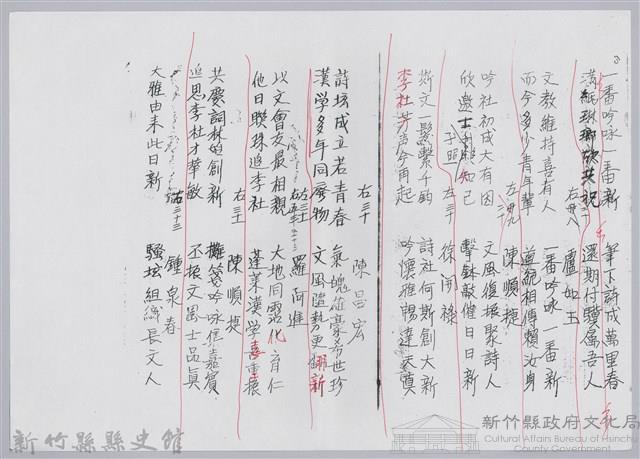 一番吟咏一番新 筆下詩成萬里春
滿紙琳瑯欣共祝 還期付驥屬吾人
右卅八 盧如玉
文教維持喜有人 一番吟咏一番新
而今多少青年輩 道統相傳賴汝身
左 陳順捷
吟社初成大有因 文風復振聚詩人
欣邀士 知己 擊鉢敲催日日新
子昭 左三十 徐開祿
斯文一髮繫千鈞 詩社何斯創大新
李杜芳声今再起 吟懷雅暢達天真
右三十 陳昌宏
詩坛成立若青春 氣塊雄豪希世珍
漢学多年同廢物 文風隨勢更翻新
左三十 羅阿進
以文會友最相親 大地同霑化育仁
他日聯珠追李社 蓬萊漢学喜重振
右三十 陳順捷
共慶詞林始創新 攤箋吟咏集嘉賓
追思李杜才華敏 丕振文風士品真
右三十三 鍾泉春
大雅由来此日新 騷坛組織長文人
新竹縣縣史館
新竹縣政府文化局
Cultural Affairs Bureau of Hsinchu
County Government